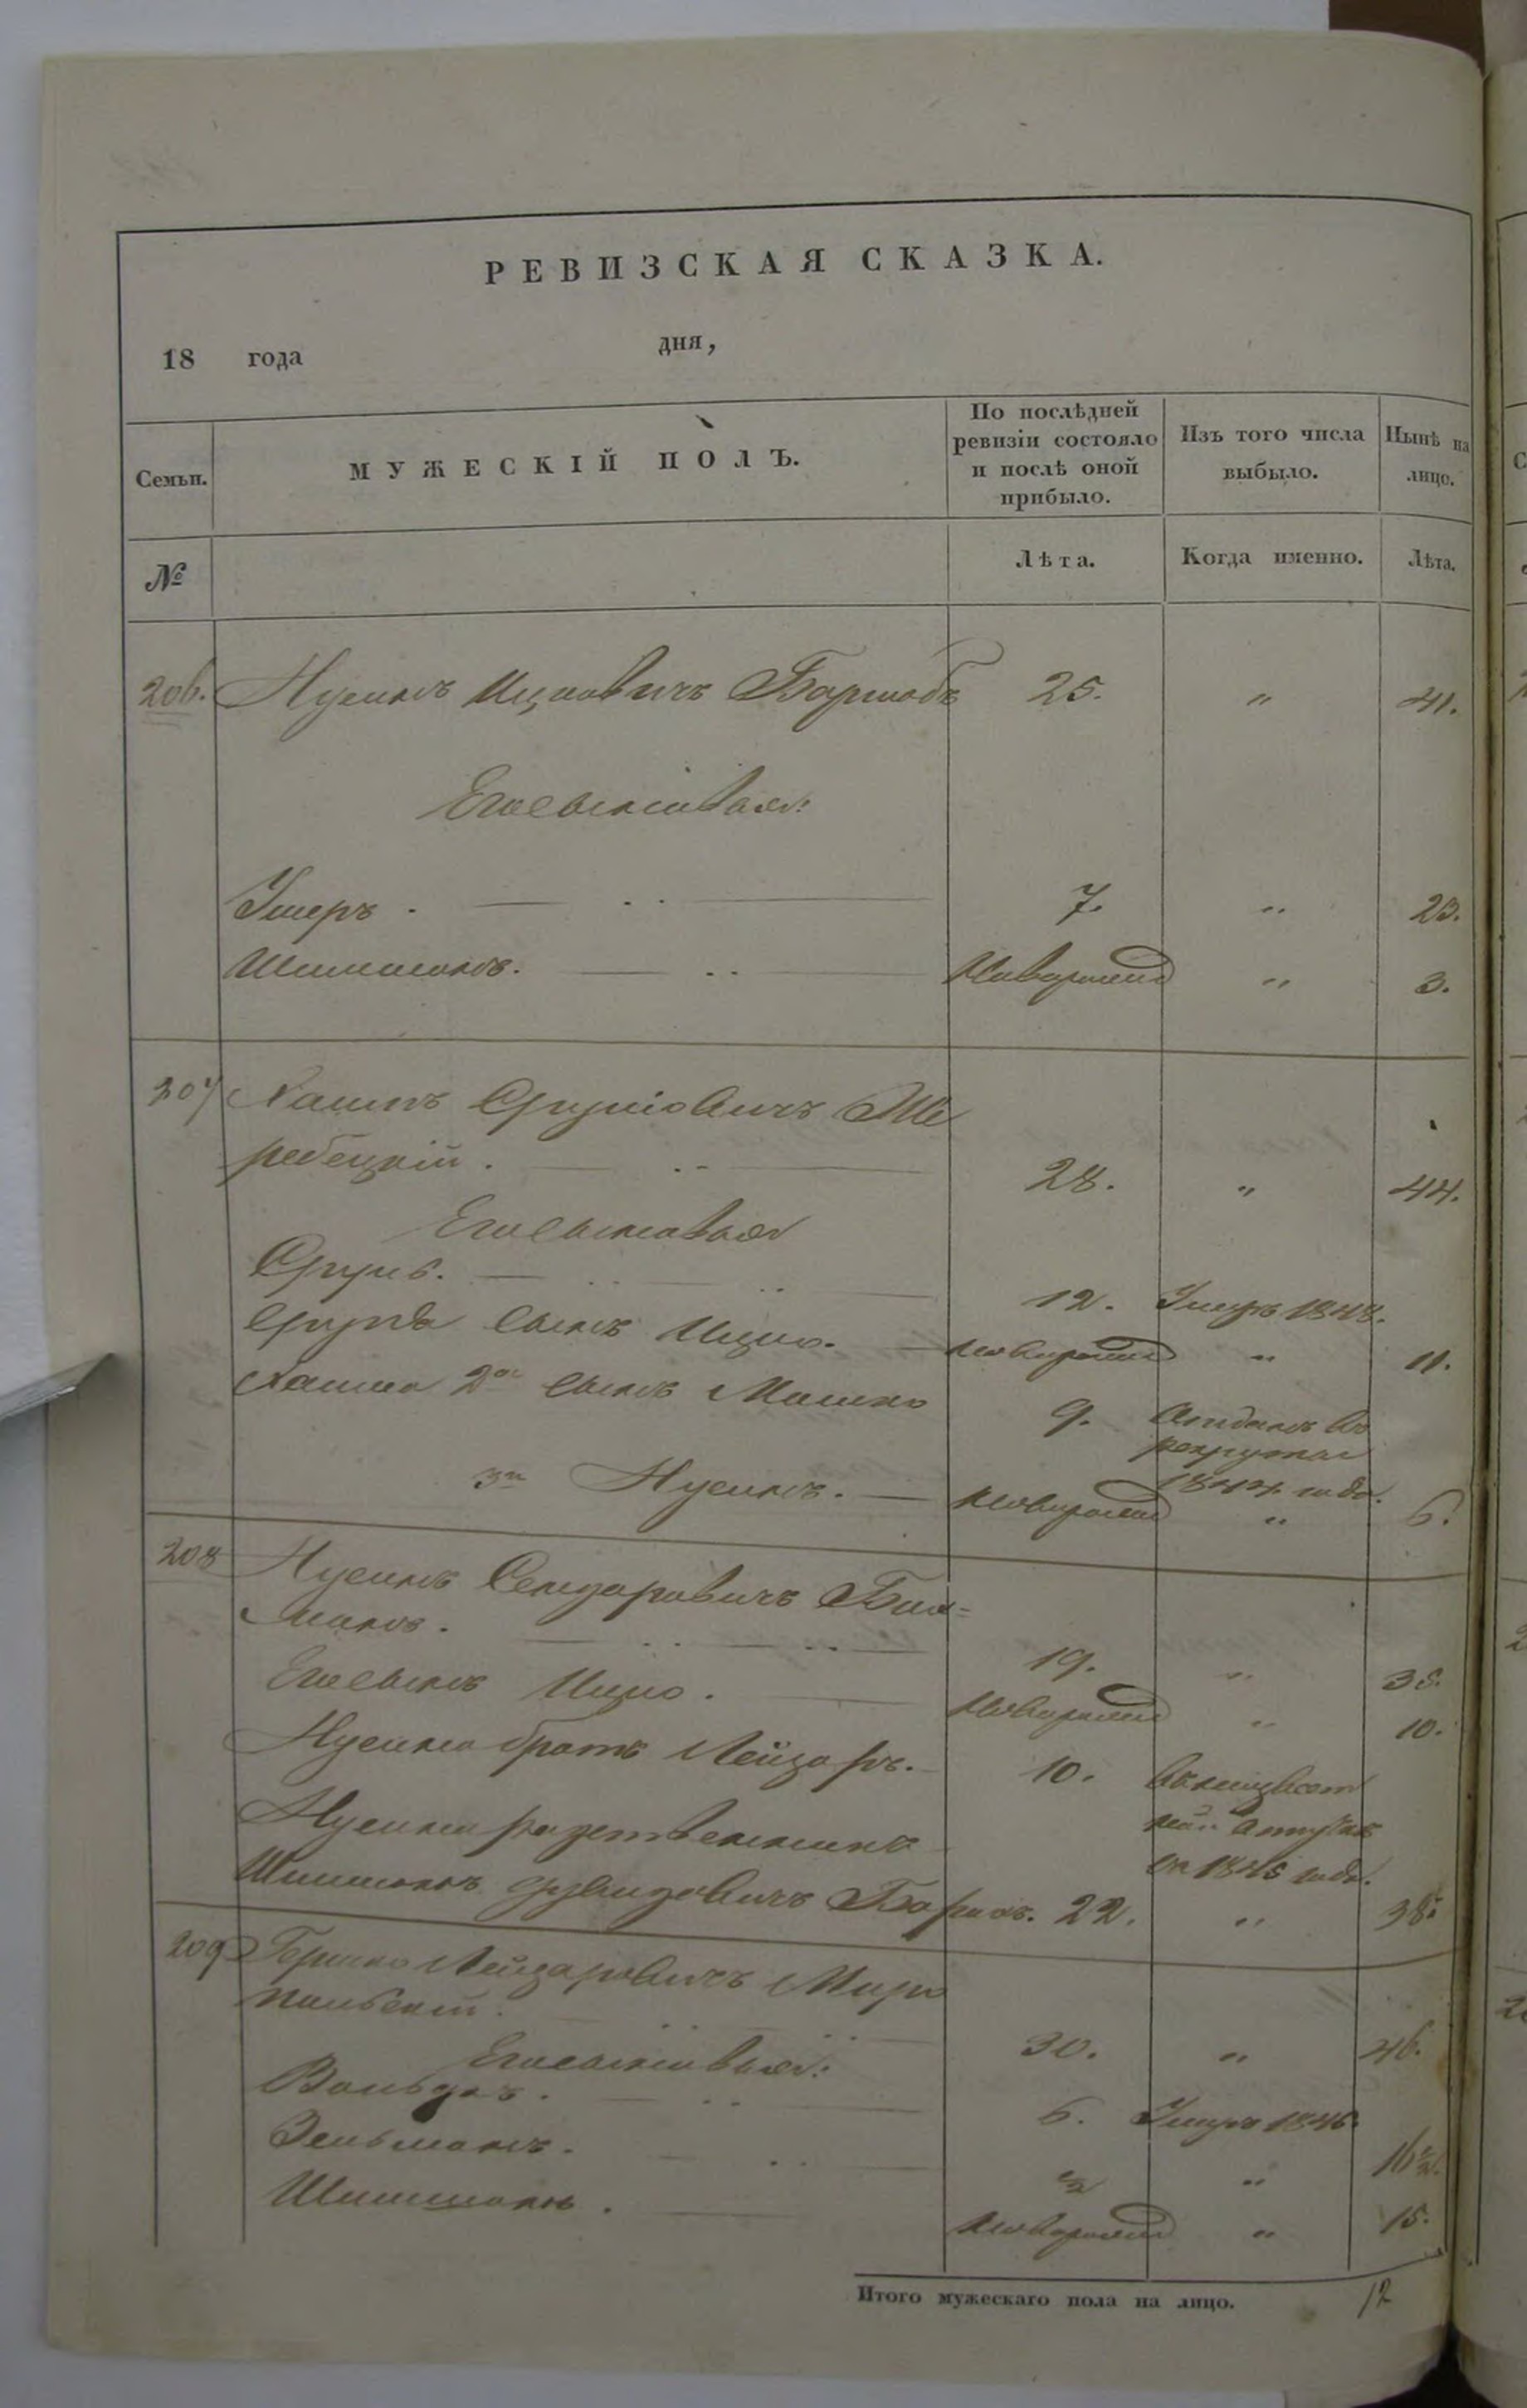 РЕВИЗСКАЯ СКАЗКА.
18 года дня,
Семьи. МУЖЕСКІЙ ПОЛЪ. По послѣдней ревизіи состояло и послѣ оной прибыло. Изъ того числа выбыло. Нынѣ на лицо.
№ Лѣта. Когда именно. Лѣта.
206. Нусинъ Ицковичъ 25. " 41.
Его сыновья:
Ушеръ. 7. " 23.
Шимшонъ. Новорожд " 3.
207 Хаимъ Сруліовичъ Же
ребецкій. 28. " 44.
Его сыновья
Сруль. 12. Умеръ 1848.
Сруля сынъ Ицко. новорожд " 11.
Хаима 2й сынъ Мошко 9. Отданъ въ
рекруты
1844 года.
3й Нусинъ. новорожд " 6.
208 Нусинъ Сендаровичъ
19. " 35.
Его сынъ Ицко. новорожд " 10.
Нусина братъ Лейзаръ. 10. въ неизвест
ной отлучке
съ 1845 года.
Нусина родственникъ
Шимшонъ Дувидовичъ 22. " 38.
209 Гершко Лейзаровичъ Миро
польскій. 30. " 46.
Его сыновья:
Вольфъ. 6. Умеръ 1846.
Зельманъ. ½ " 16½.
Шимшонъ. новорожд " 15.
Итого мужескаго пола на лицо. 12